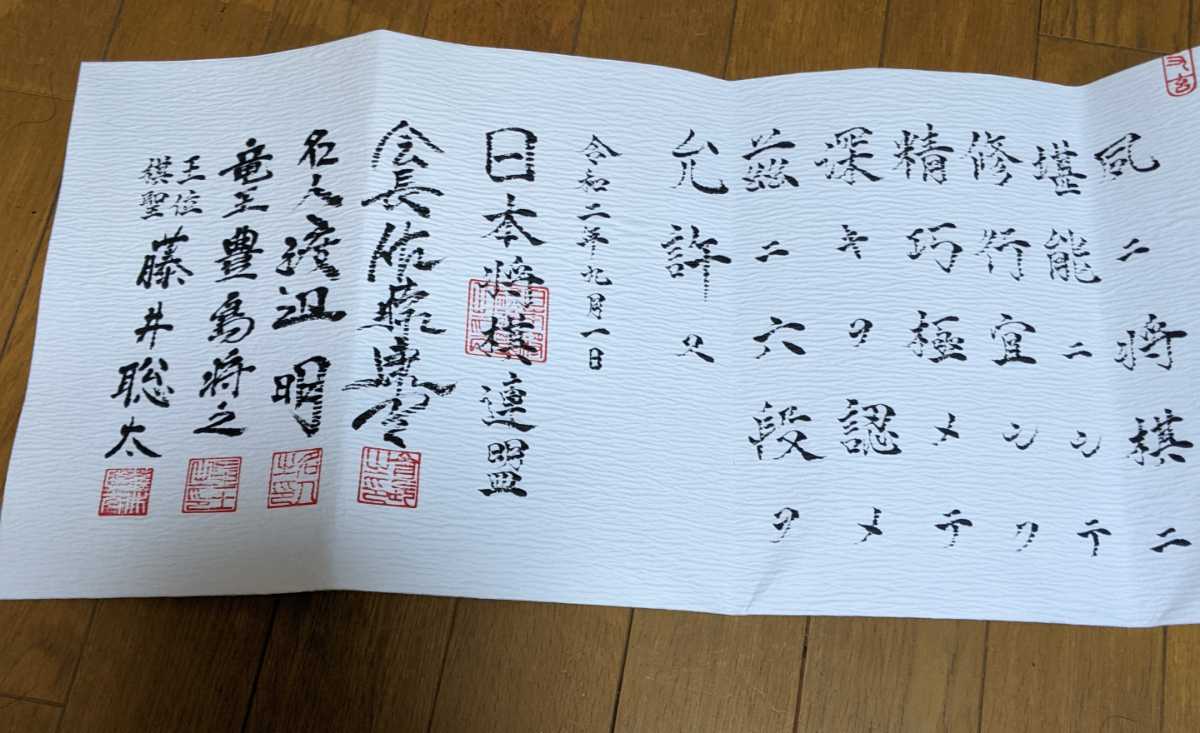 夙ニ将棋ニ
堪能ニシテ
修行宜シク
精巧極メテ
深キヲ認メ
茲ニ六段ヲ
允許ス
令和二年九月一日
日本将棋連盟
会長佐藤康光
名人渡辺明
竜王豊島将之
王位
棋聖
藤井聡太